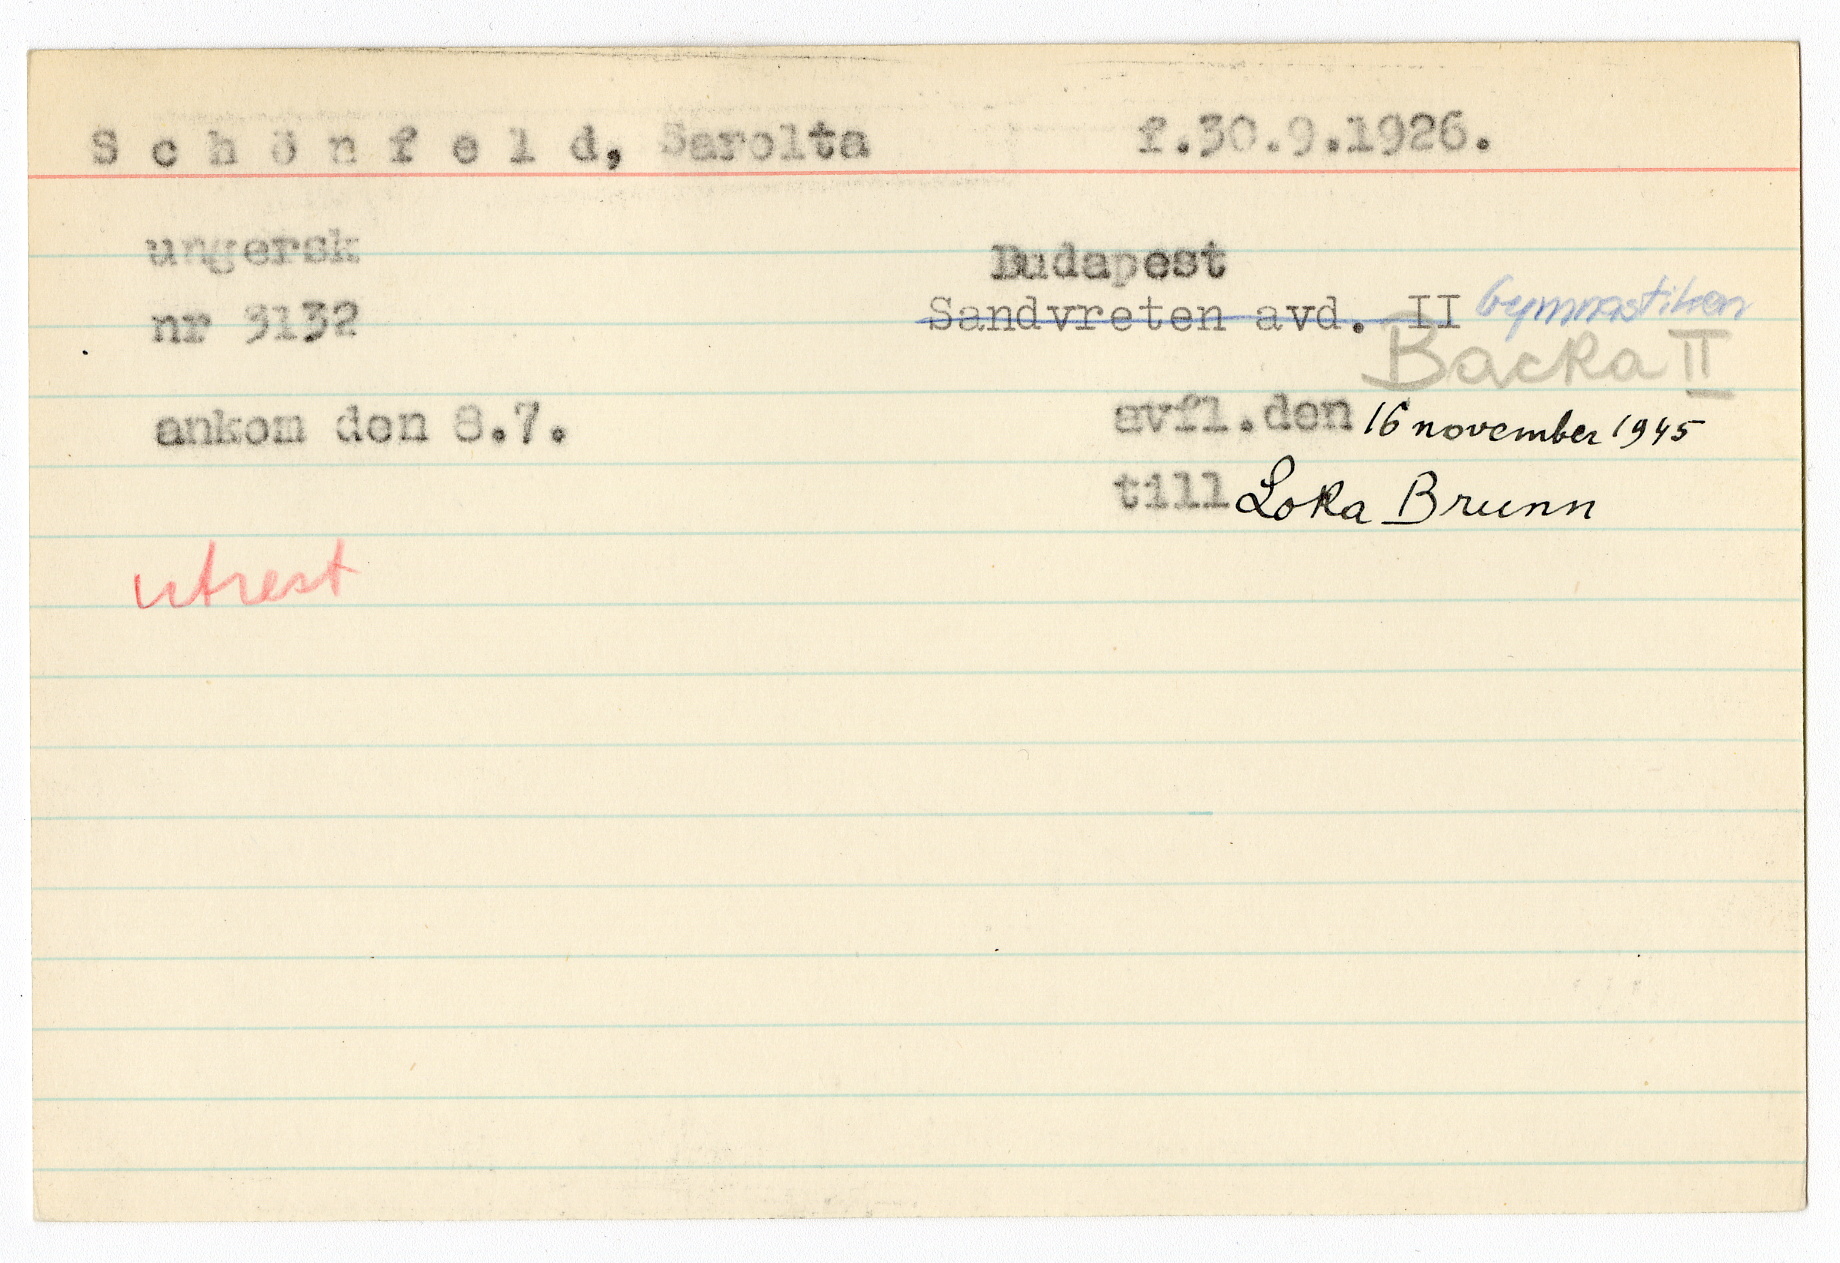 S c h ö n f e l d, Sarolta f.30.9.1926.
ungersk Budapest
nr 3132 Sandvreten avd. II Gymnastiken
Backa II
ankom den 8.7. avfl.den 16 november 1945
till Loka Brunn
utrest